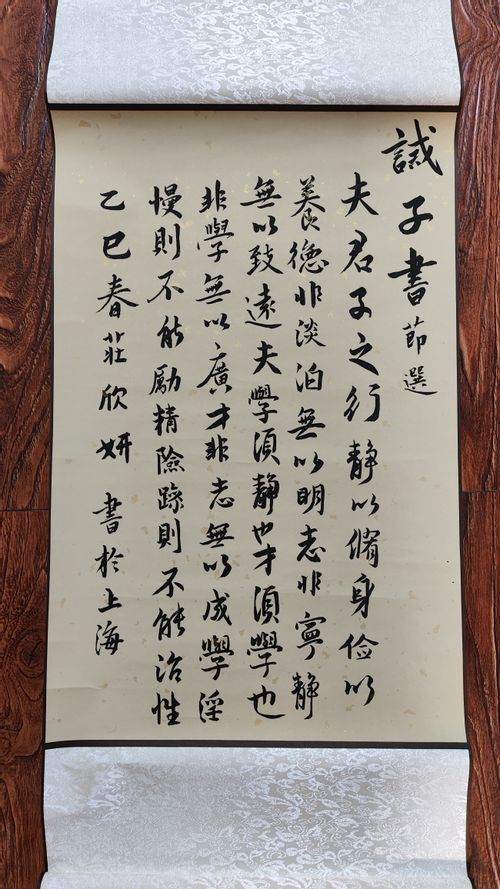 誡子書節選
夫君子之行靜以脩身儉以
養德非淡泊無以明志非寧靜
無以致遠夫學須靜也才須學也
非學無以廣才非志無以成學淫
慢則不能勵精險躁則不能治性
乙巳春莊欣妍書於上海